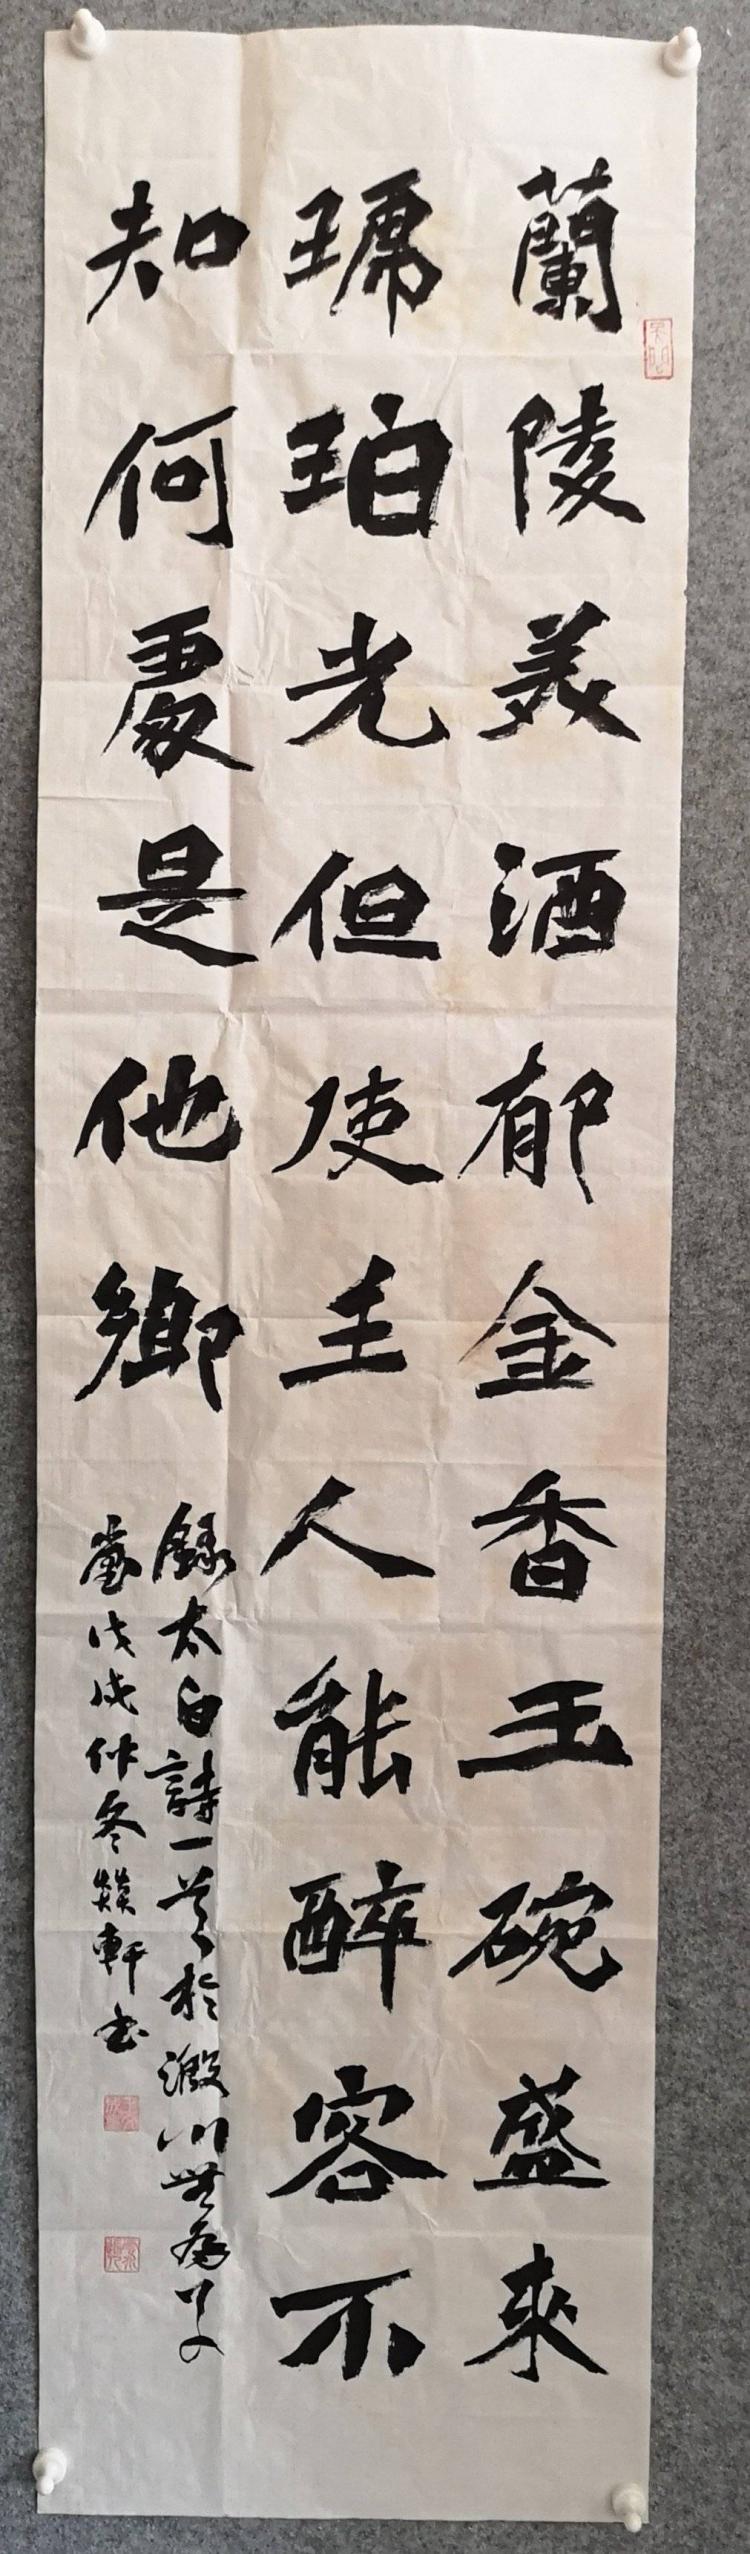 蘭陵美酒郁金香玉碗盛来
琥珀光但使主人能醉客不
知何處是他鄉
錄太白詩一首於濲川無為
歲戊戌仲冬燚軒书